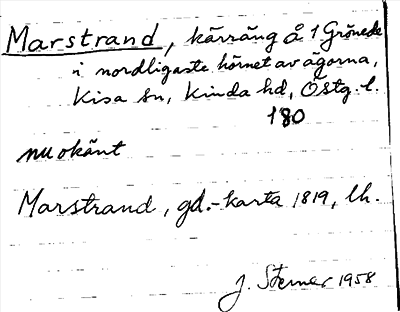 Marstrand, kärräng å 1 Grönede
i nordligaste hörnet av ägorna,
Kisa sn, Kinda hd, Östg. l.
180
nu okänt
Marstrand, gd.-karta 1819, lh.
J. Sterner 1958